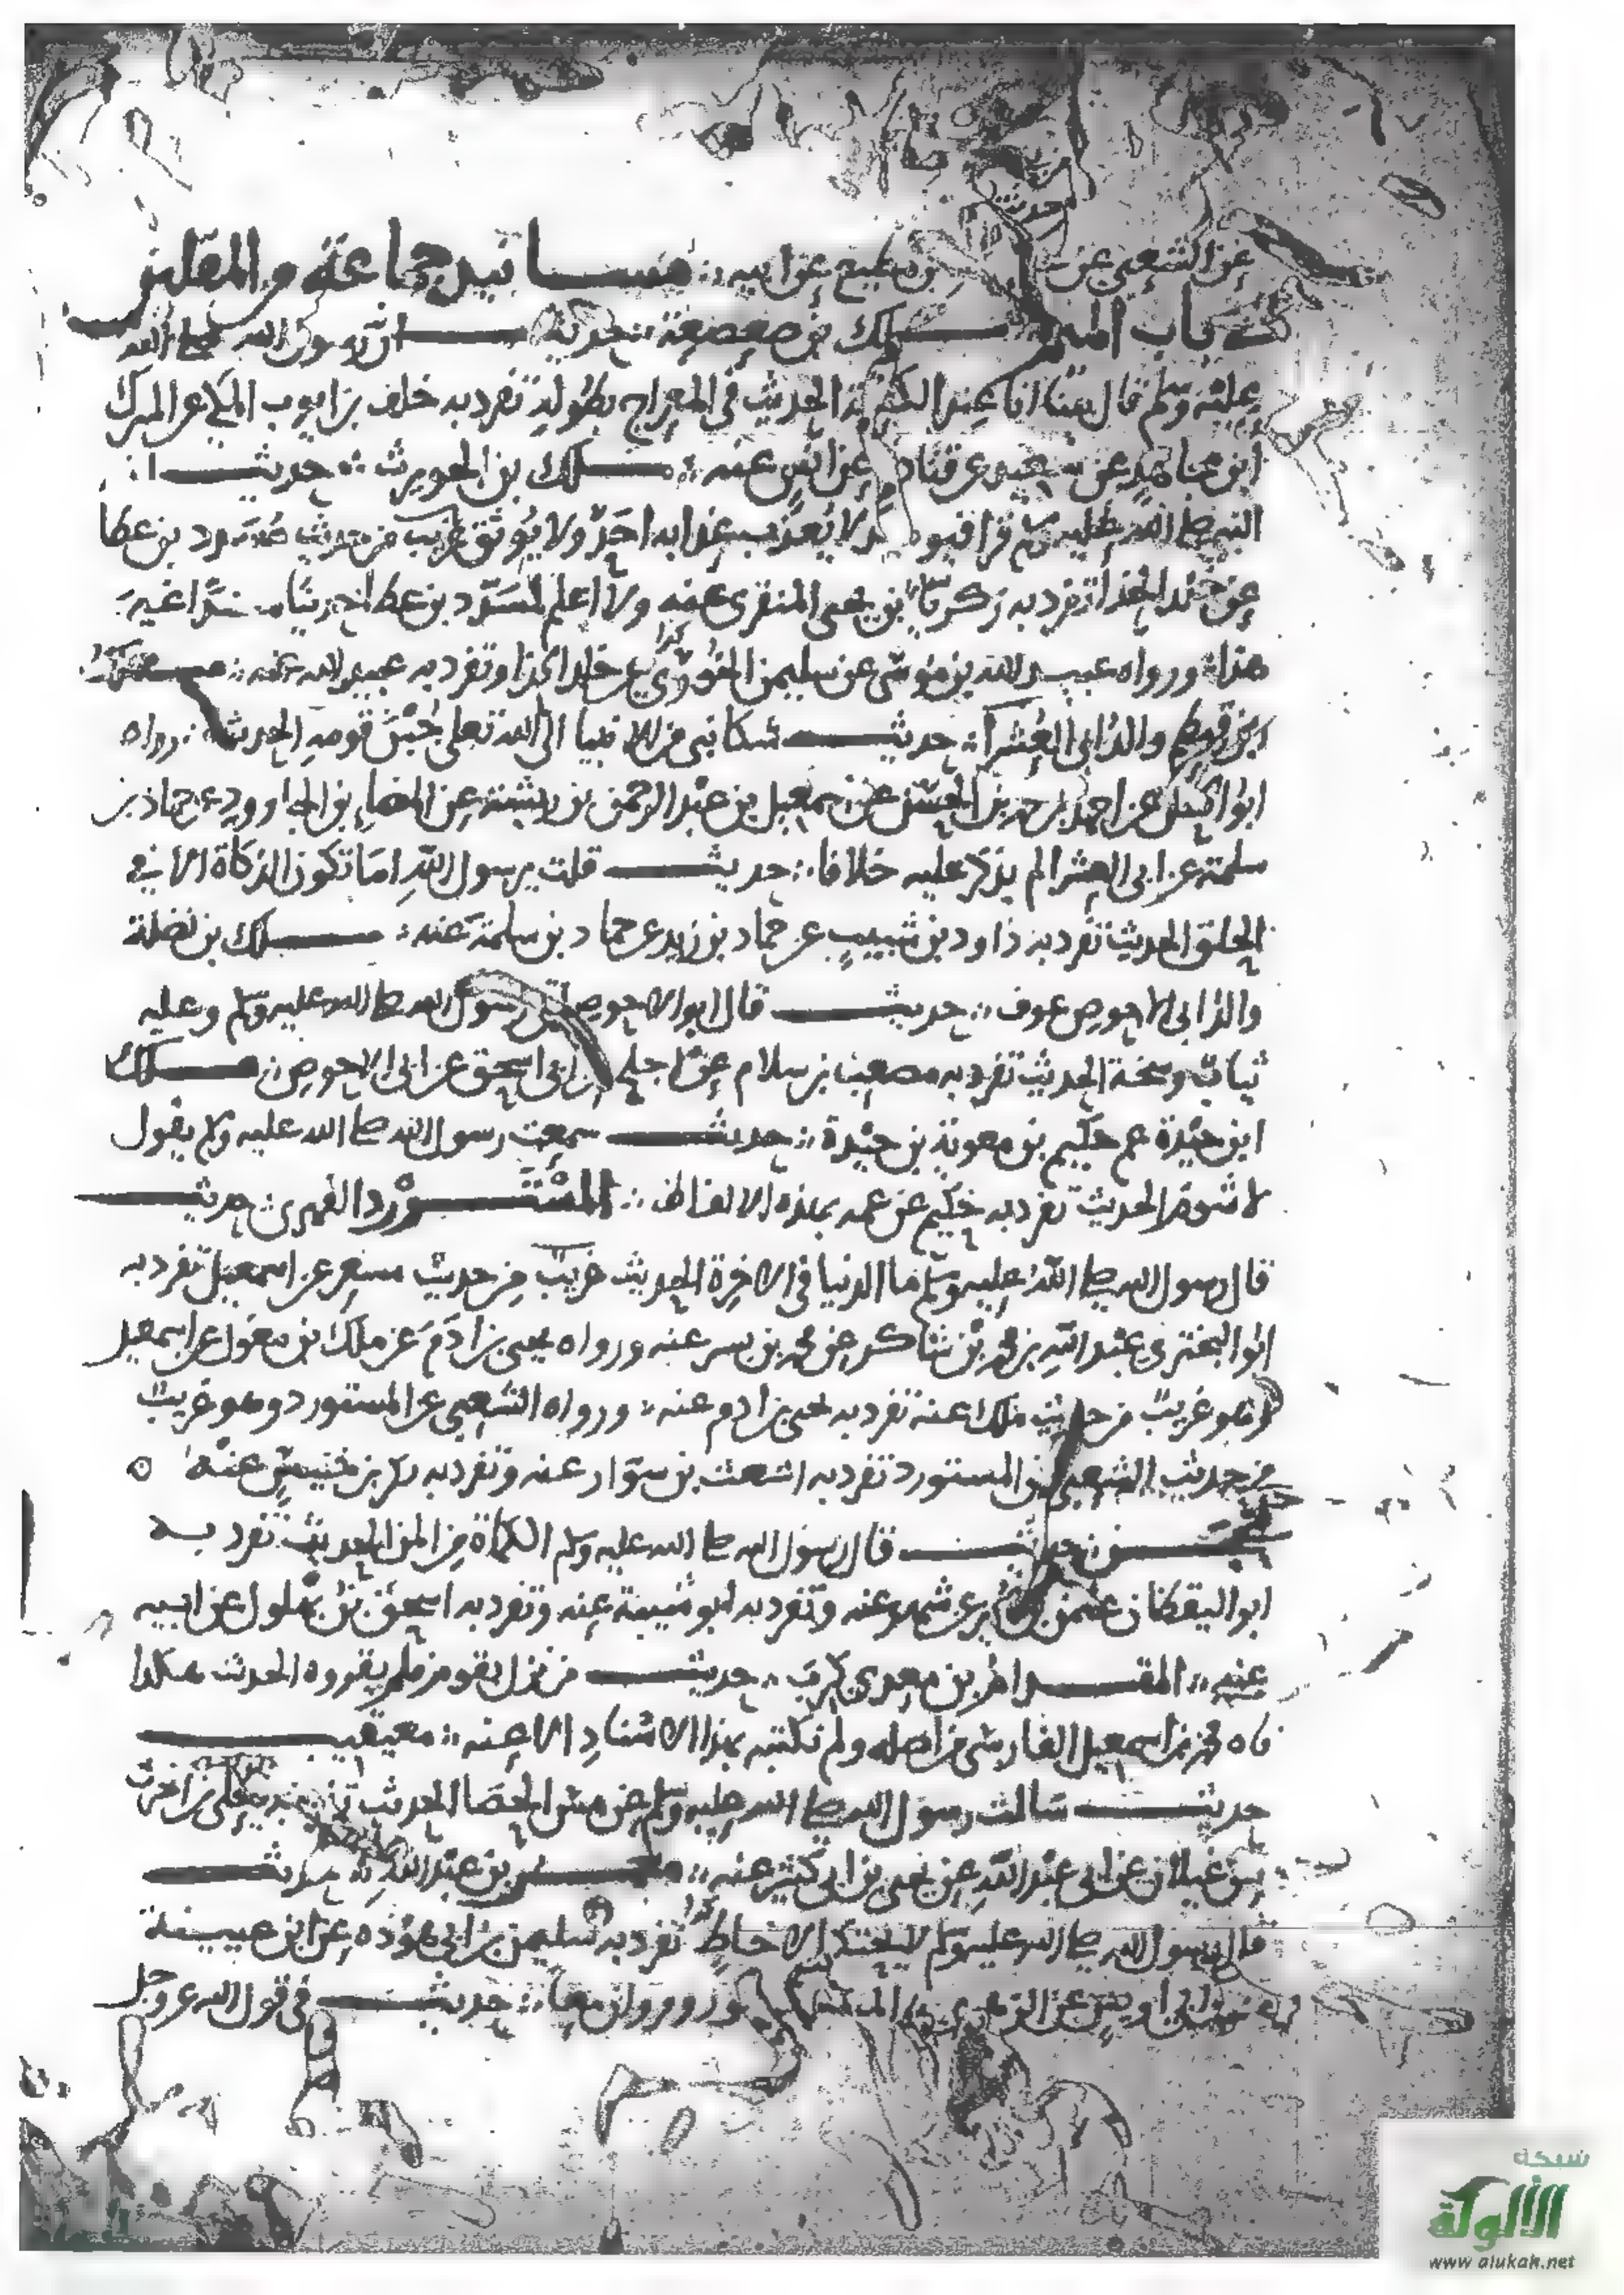 حديث
عن الشعبي عن بن مطيع عن ابيه ∴ مسانيد جماعة من المقلين
في باب الميم ملك بن صعصعة حديث ان رسول الله صلى الله
عليه وسلم قال بينا انا عند الحديث في المعراج بطوله تفرد به خلف بن ايوب عن المبرك
ابن مجاهد عن عن قتادة عن انس عنه ∴ ملك بن الحويرث ∴ حديث ان
النبي صلى الله عليه وسلم قرا فيوميذ لا يعذب عذابه احد ولا يوثق غريب من حديث مسرد بن عطا
عن خلد الحذا تفرد به زكريا بن يحيى المنقري عنه ولا اعلم لمسرد بن عطا حديثا مسندا غير
هذا ∴ ورواه عبيد الله بن موسى عن سليمن الخوزي عن خالد الحذا وتفرد به عبيد الله عنه ∴
ابن قهطم والد ابي العشرا ∴ حديث شكا نبي من الانبيا الى الله تعلى جبن قومه الحديث ∴ رواه
ابو عن احمد بن عن سمعيل بن عبد الرحمن بن عن المضا بن الجارود عن حماد بن
سلمة عن ابي العشرا لم يذكر عليه خلافا ∴ حديث قلت يرسول الله اما تكون الذكاة الا في
الحلق الحديث تفرد به داود بن شبيب عن حماد بن زيد عن حماد بن سلمة عنه ∴ ملك بن نضلة
والد ابي الاحوص عوف ∴ حديث قال ابو الاحوص رسول الله صلى الله عليه وسلم وعليه
ثياب وسخة الحديث تفرد به مصعب بن سلام عن اجلح عن ابي اسحق عن ابي الاحوص ∴ ملك
ابن حيدة عم حكيم بن معوية بن حيدة ∴ حديث سمعت رسول الله صلى الله عليه وسلم يقول
لا شوم الحديث تفرد به حكيم عن عمه بهذه الالفاظ ∴ المستورد الفهري ∴ حديث
قال رسول الله صلى الله عليه وسلم ما الدنيا في الاخرة الحديث غريب من حديث مسعر عن اسمعيل تفرد به
ابو البختري عبد الله بن محمد بن شاكر عن محمد بن بشر عنه ورواه يحيى بن ادم عن ملك بن مغول عن اسمعيل
وهو غريب من حديث ملك عنه تفرد به يحيى بن ادم عنه ∴ ورواه الشعبي عن المستورد وهو غريب
من حديث الشعبي عن المستورد تفرد به اشعث بن سوار عنه وتفرد به بكر بن خنيس عنه
محجن ∴ حديث قال رسول الله صلى الله عليه وسلم الكماة من المن الحديث تفرد به
ابو اليقظان عثمن بن عمير عن شهر عنه وتفرد به ابو شيبة عنه وتفرد به اسحق بن بهلول عن ابيه
عنه ∴ المقدام بن معدي كرب ∴ حديث من نزل بقوم فلم يقروه الحديث هكذا
ناه محمد بن اسمعيل الفارسي من اصله ولم نكتبه بهذا الاسناد الا عنه ∴ معيقيب
حديث سالت رسول الله صلى الله عليه وسلم عن مس الحصا الحديث
بن غيلان عن ابي عبد الله عن يحيى بن ابي كثير عنه ∴ معمر بن عبد الله ∴ حديث
قال رسول الله صلى الله عليه وسلم لا يحتكر الا خاطي تفرد به سليمن بن ابي هوذه عن ابن عيينة
عن ابن ابي اويس عن الزهري ∴ المسور ومروان معا ∴ حديث في قول الله عز وجل
شبكة
الألوكة
www.alukah.net